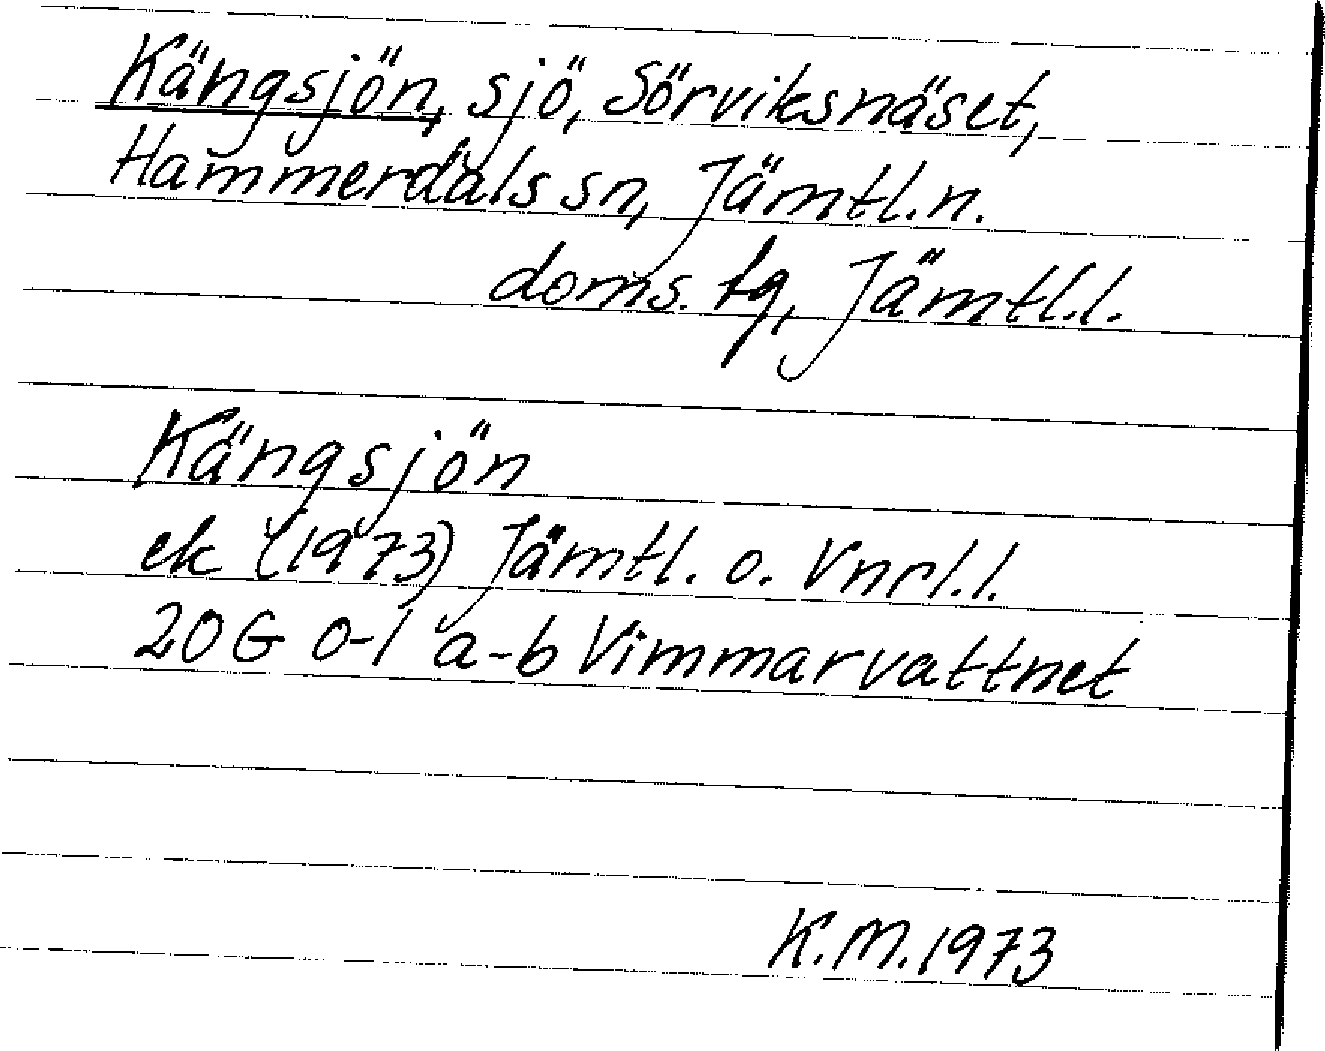 Kängsjön, sjö, Sörviksnäset,
Hammerdals sn, Jämtl.n.
doms. fq, Jämtl.l.
Kängsjön
ek (1973) Jämtl. o. Vnrl.l.
20 G 0-1 a-b Vimmarvattnet
K.M.1973